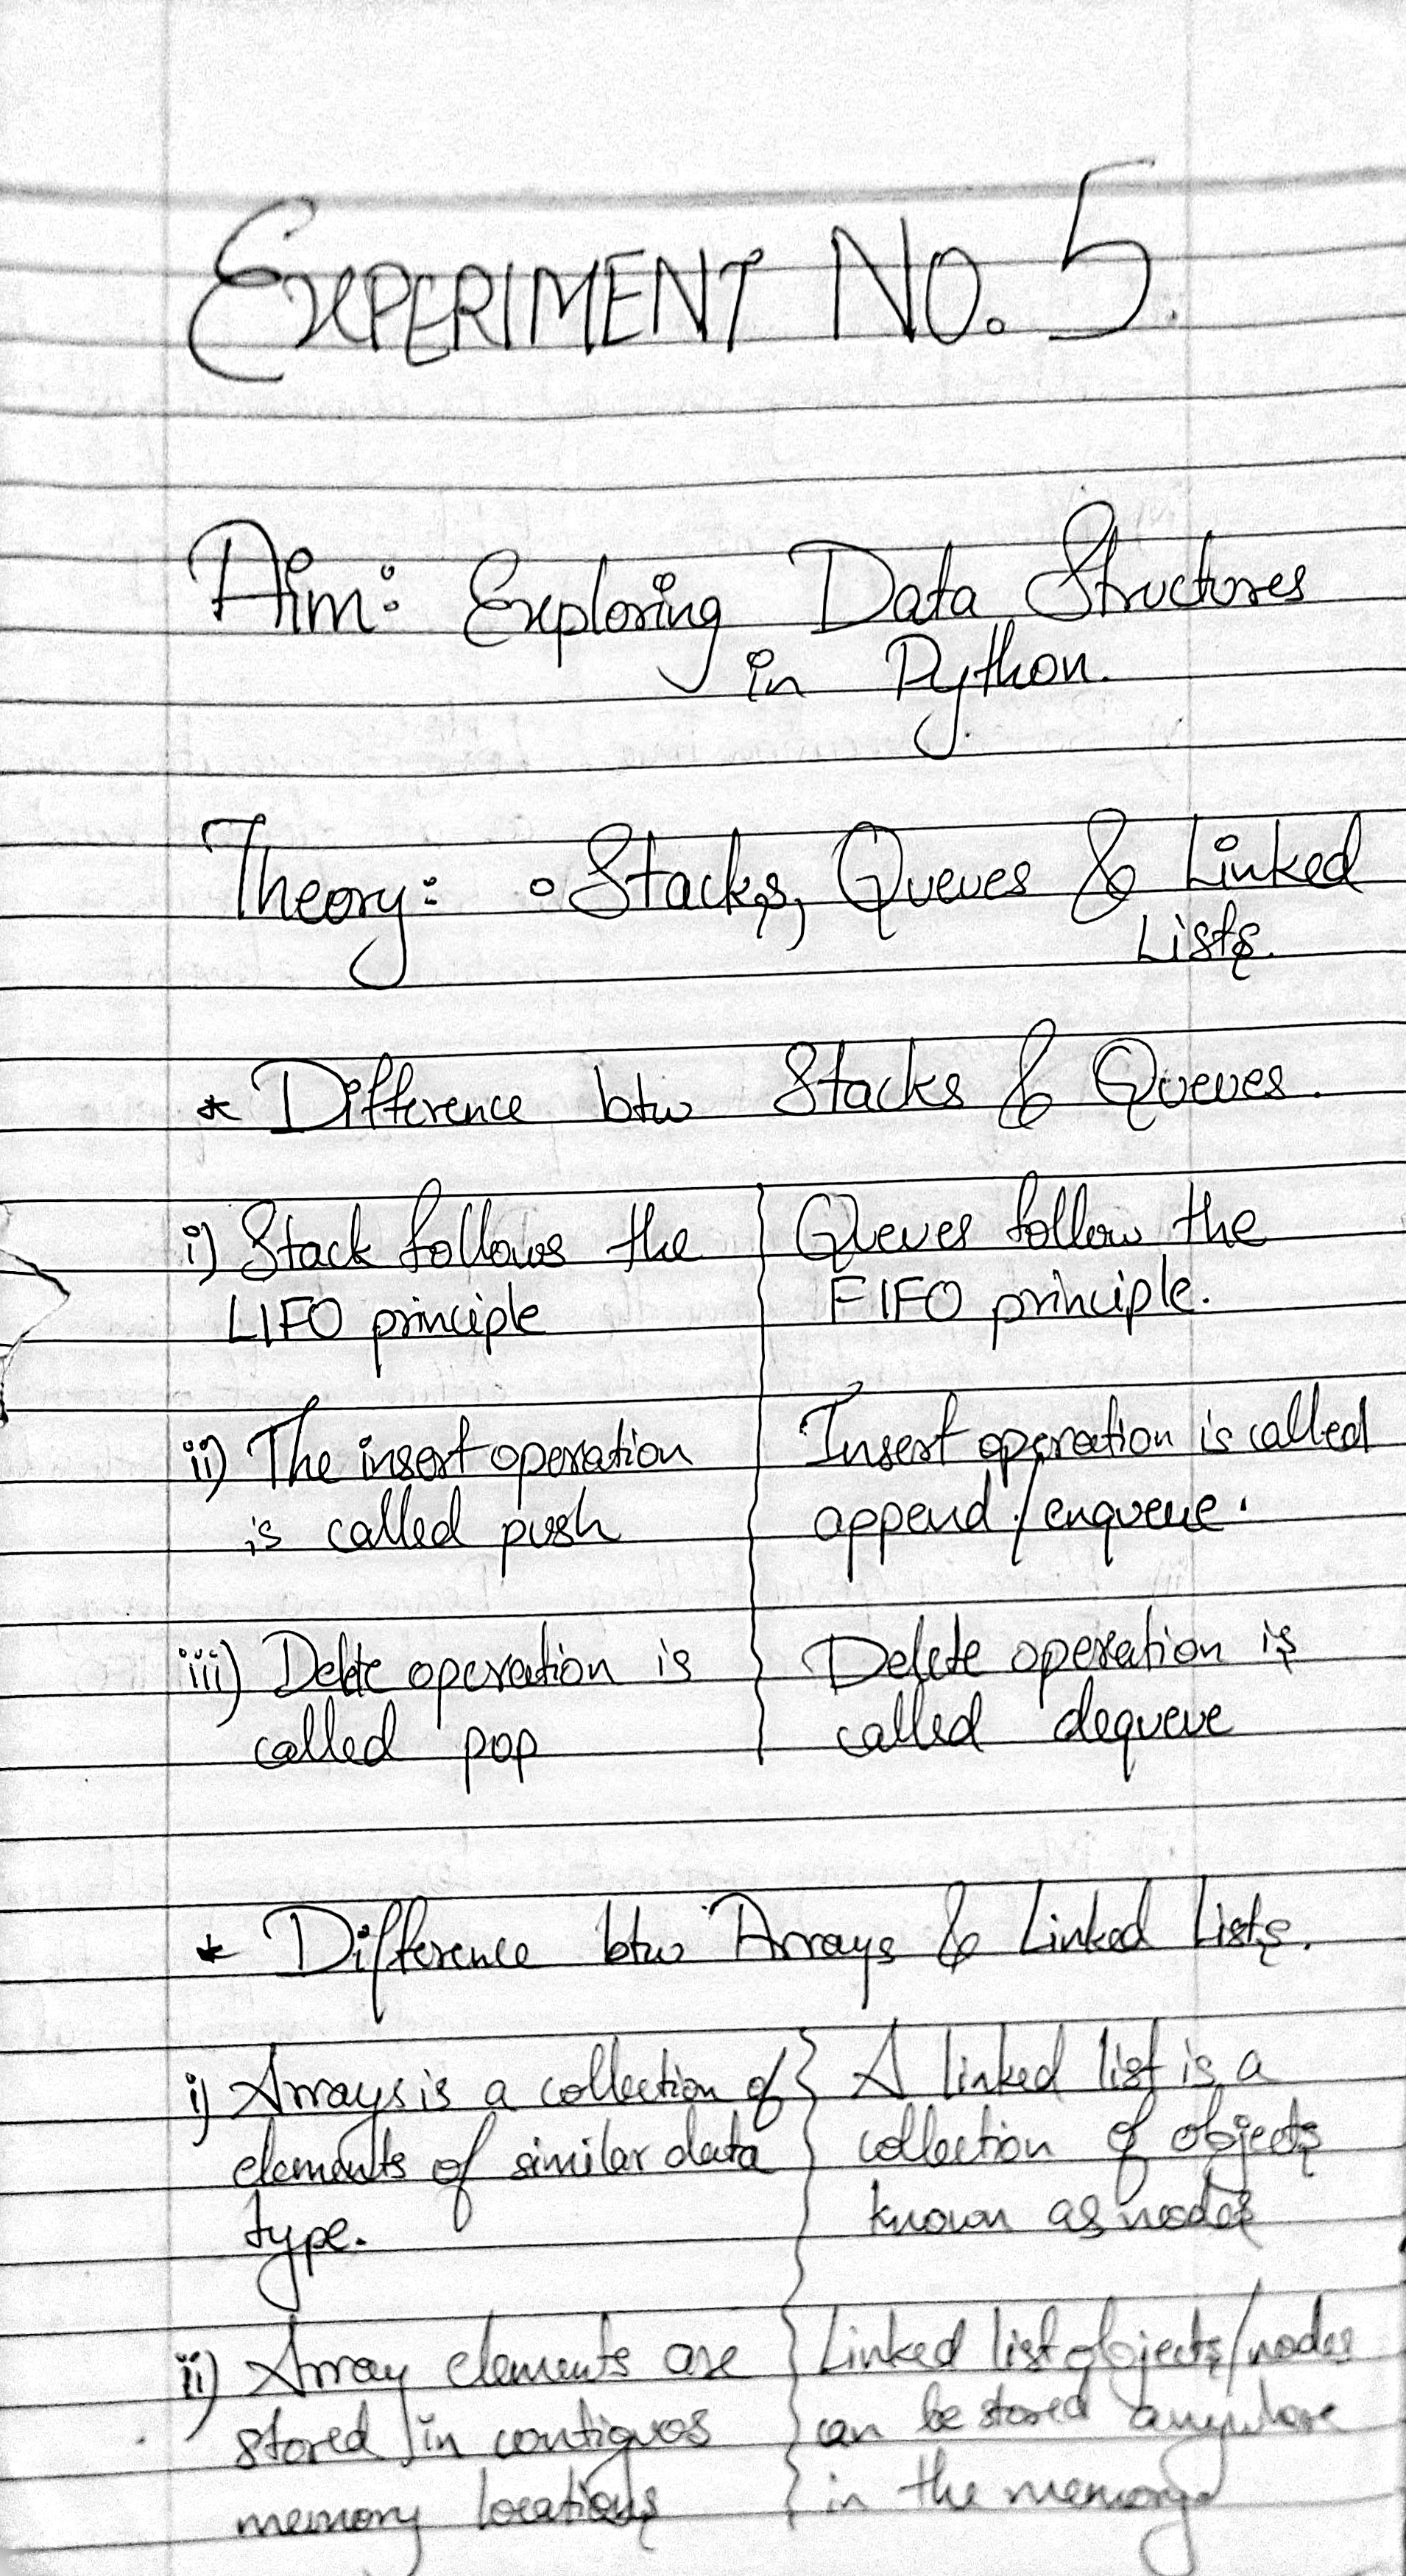 EXPERIMENT NO. 5.
Aim: Exploring Data Structures
in Python.
Theory: • Stacks, Queues & Linked
Lists.
* Difference btw Stacks & Queues.
i) Stack follows the
LIFO principle
Queues follow the
FIFO principle.
ii) The insert operation
is called push
Insert operation is called
append / enqueue.
iii) Delete operation is
called pop
Delete operation is
called dequeue
* Difference btw Arrays & Linked Lists.
i) Arrays is a collection of
elements of similar data
type.
A linked list is a
collection of objects
known as nodes
ii) Array elements are
stored in contiguos
memory locations
Linked list objects/nodes
can be stored anywhere
in the memory.